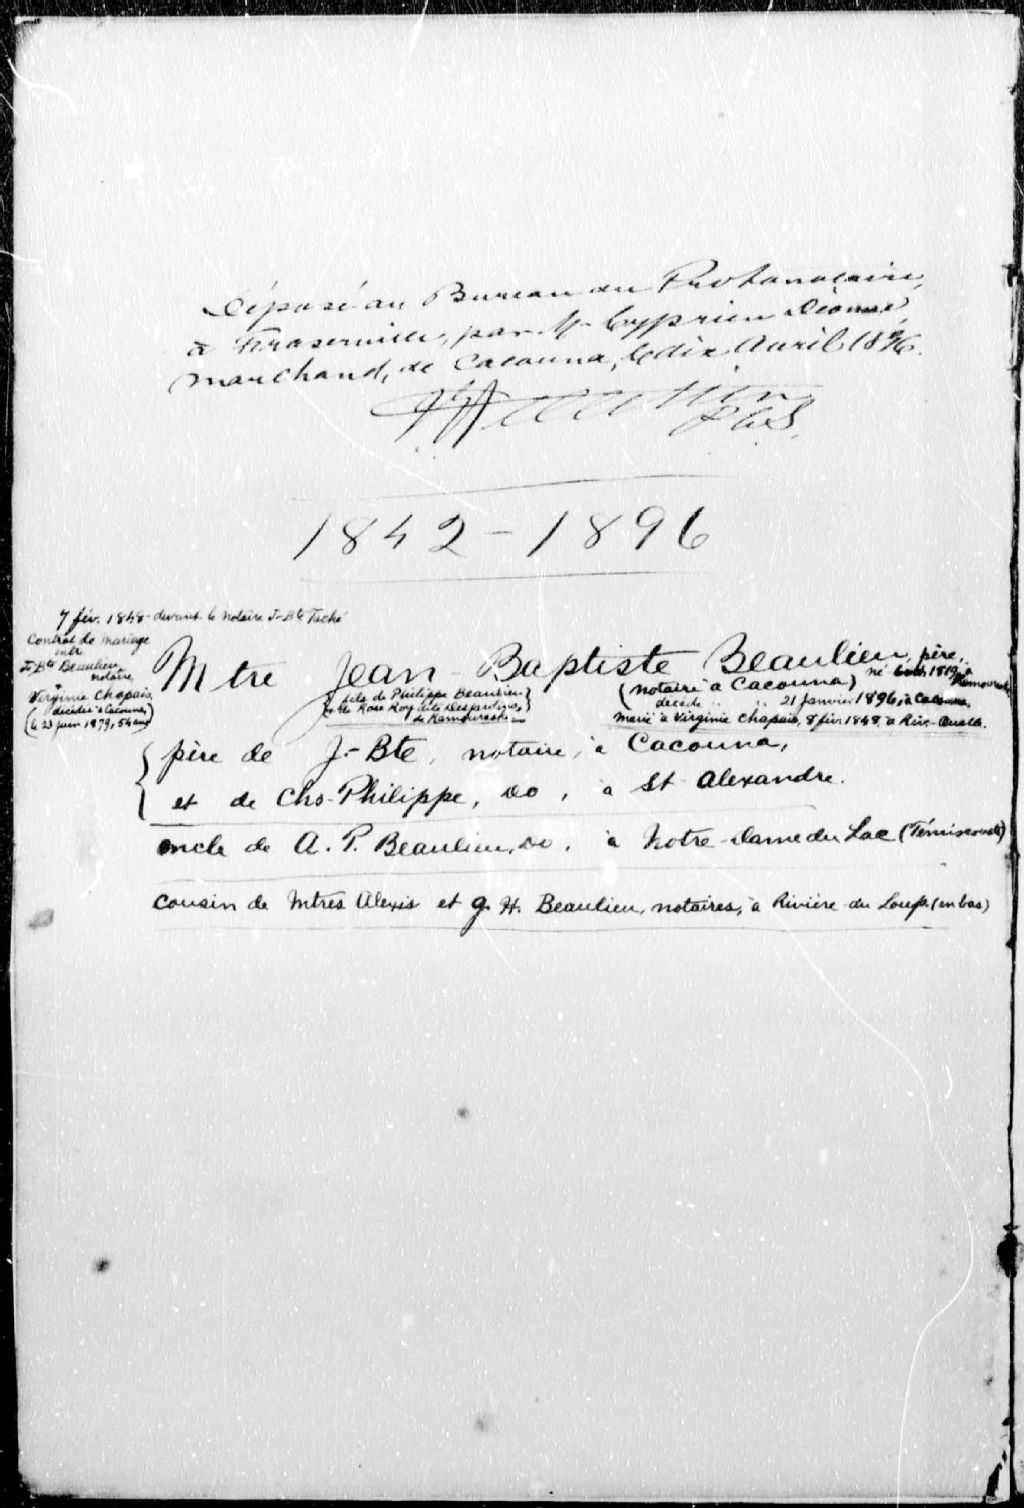 Déposé au Bureau du Protonotaire,
à Fraserville, par Mr Cyprien Dionne,
marchand, de Cacouna, le dix Avril 1896.
P.C.S.
1842 - 1896
7 fév. 1848 devant le notaire J-Bte Taché
Contrat de mariage
entre
J-Bte Beaulieu,
notaire,
&
Virginie Chapais,
(décédée à Cacouna,
le 23 juin 1879, 54 ans)
Mtre Jean-Baptiste Beaulieu, père,
(notaire à Cacouna) né 1819, à Kamouraska
(fils de Philippe Beaulieu
& de Rose Roy dite Desjardins,
de Kamouraska)
décédé " " 21 Janvier 1896, à Cacouna,
marié à Virginie Chapais, 8 fév. 1848, à Riv.-Ouelle.
père de J.-Bte, notaire, à Cacouna,
et de Chs-Philippe, do, à St Alexandre.
oncle de A. P. Beaulieu, do, à Notre-Dame du Lac (Témiscouata)
cousin de Mtres Alexis et G. H. Beaulieu, notaires, à Rivière-du-Loup (en bas)